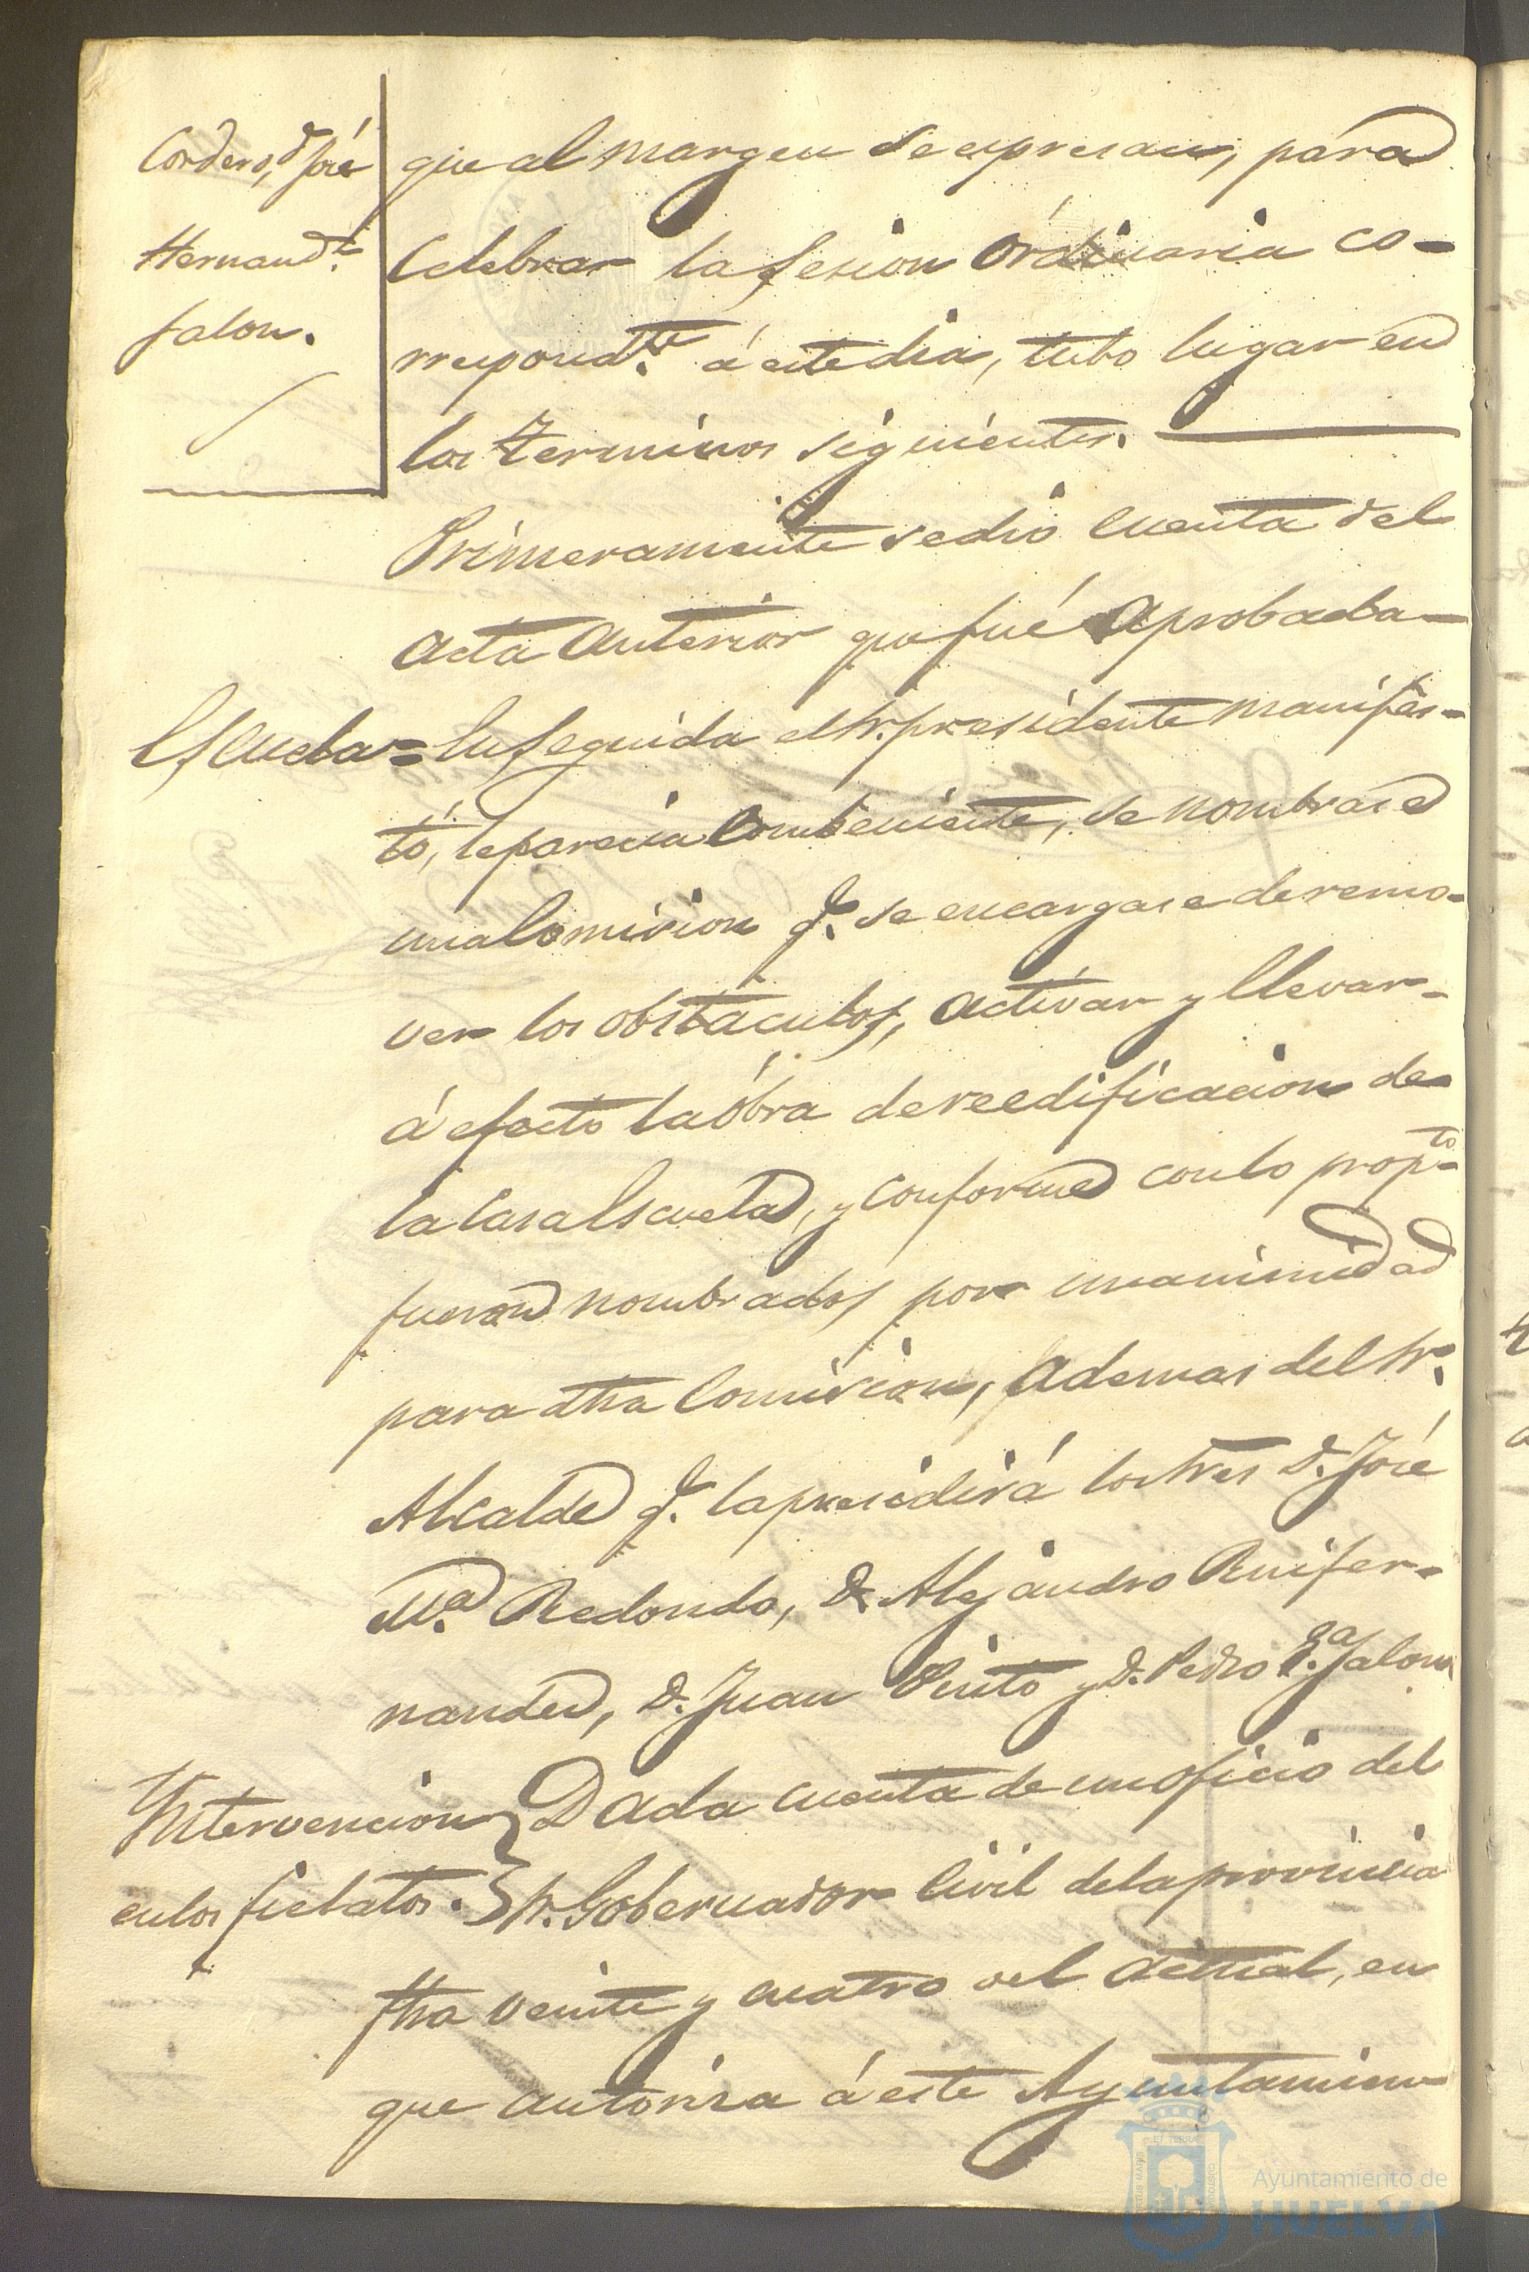 Cordero, d José
Hernandz.
Jalon.
que al margen se expresan, para
Celebrar la sesion Ordinaria co-
rrespondte. á este dia, tubo lugar en
los terminos siguientes.
Primeramente se dió cuenta del
acta anterior que fué aprobada-
Escuela= En seguida el Sr. presidente manifes-
tó, le parecia combeniente, se nombrase
una Comision q. se encargase de remo-
ver los obstaculos, activar y llevar-
á efecto la óbra de reedificacion de-
la Casa Escuela, y conforme con lo propto
fueron nombrados por unanimidad
para dha Comision, Ademas del Sr.
Alcalde q. la presidirá los Sres D. José
Ma. Redondo, D. Alejandro Ruifer-
nandes, D. Juan Pinto y D. Pedro Ga. Jalon
Intervencion
en los fielatos.
Dada cuenta de un oficio del
Sr. Gobernador Civil de la provincia
fha veinte y cuatro del actual, en
que autoriza á este Ayuntamien-
Ayuntamiento de
HUELVA